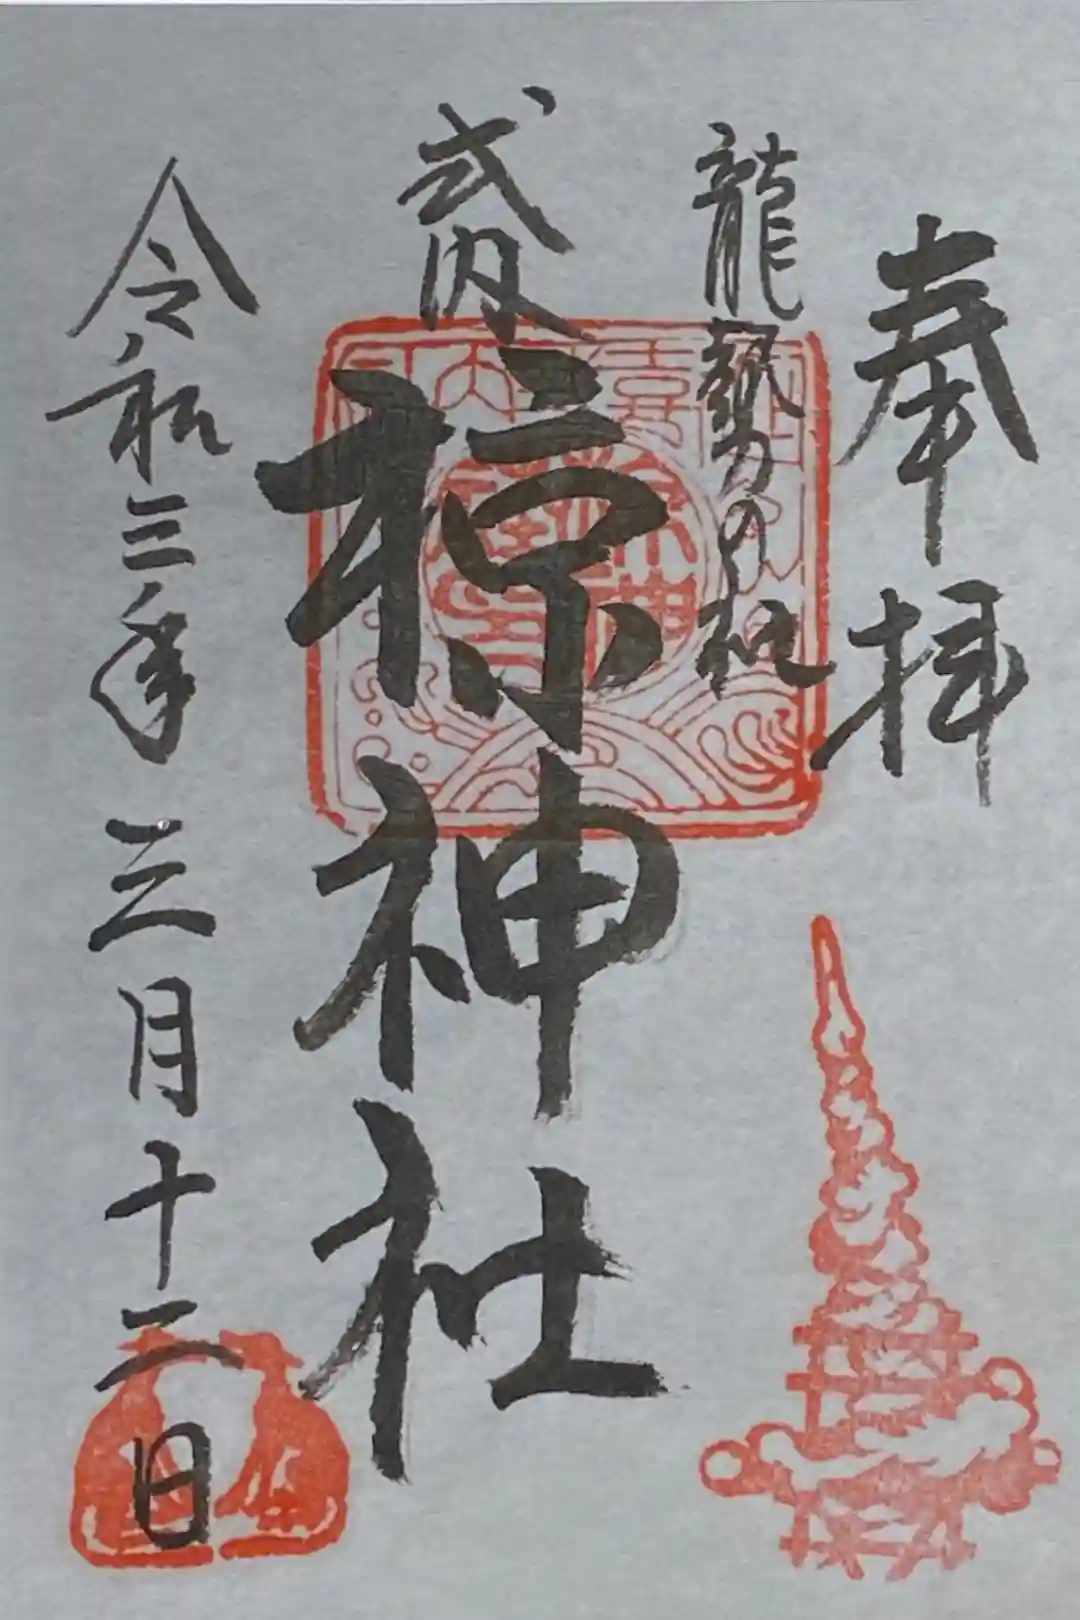 奉拝
龍勢の社
式内
椋神社
令和三年三月十二日